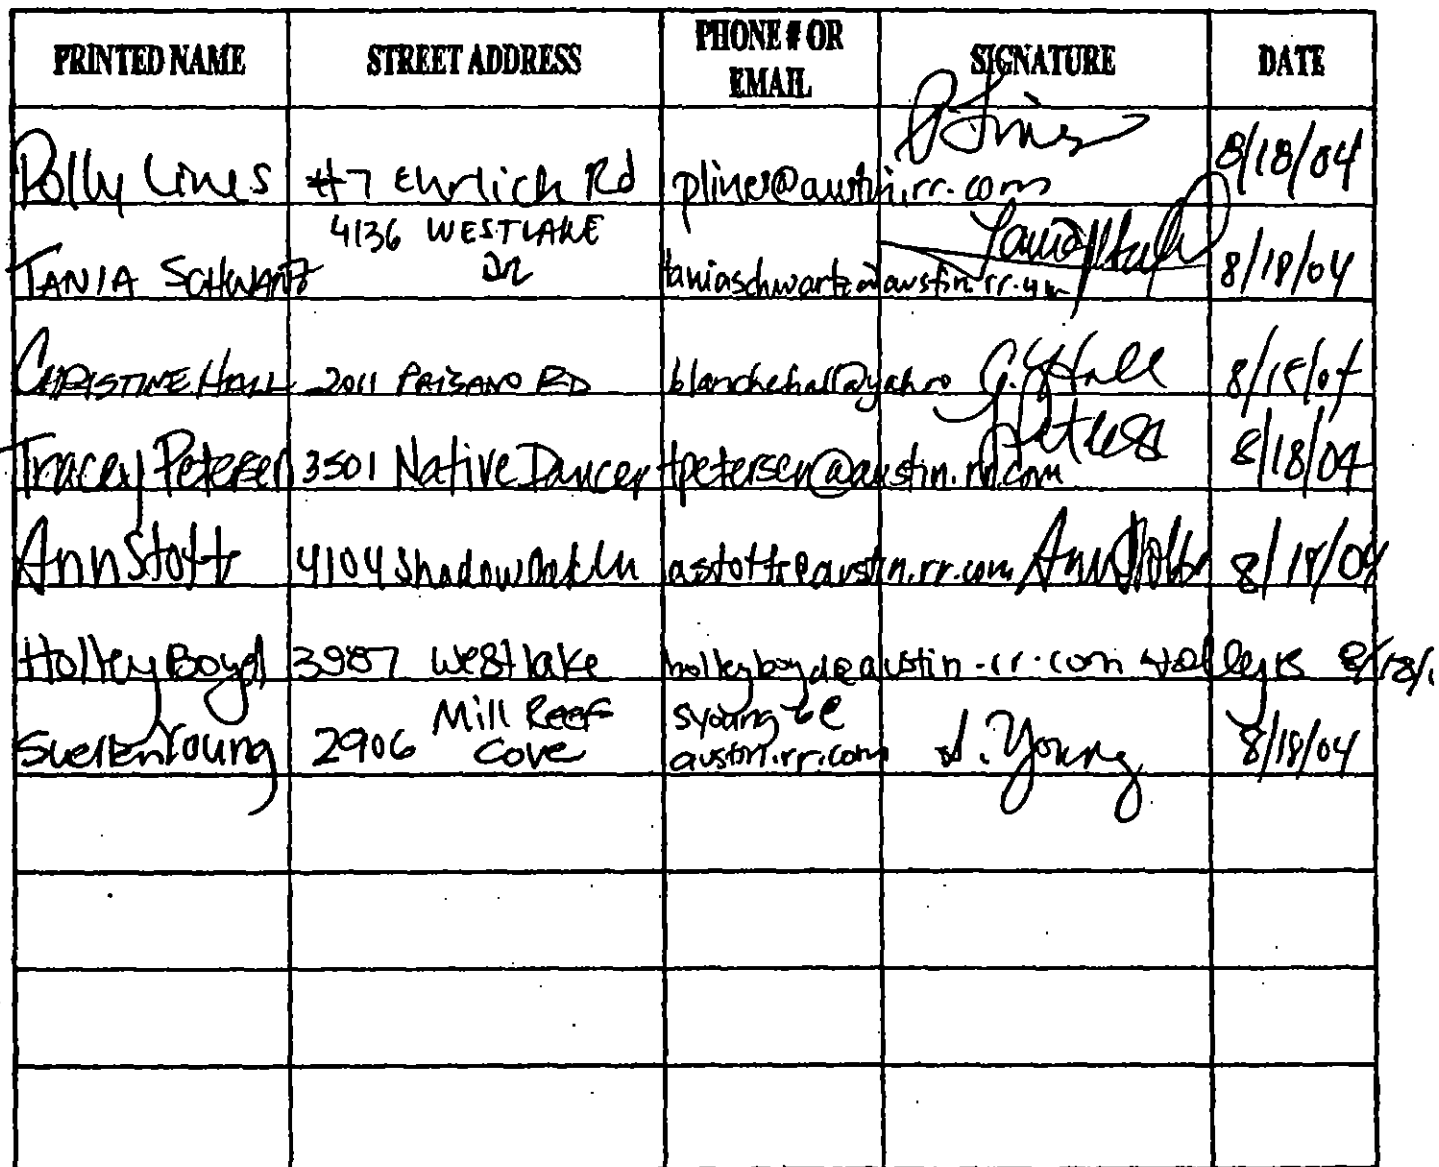 PRINTED NAME STREET ADDRESS PHONE # OR EMAIL SIGNATURE DATE
Polly Lines #7 Ehrlich Rd plines@austin.rr.com P Lines 8/18/04
TANIA SCHWARTZ 4136 WESTLAKE DR taniaschwartz@austin.rr.com 8/18/04
CHRISTINE HALL 2011 PAISANO RD blanchehall@yahoo C. Hall
Tracey Petersen 3501 Native Dancer tpetersen@austin.rr.com 8/18/04
Ann Stotts 4104 Shadow Oak Ln astotts@austin.rr.com Ann Stotts 8/18/04
Holley Boyd 3987 Westlake holleyboyd@austin.rr.com 8/18/
Suellen Young 2906 Mill Reef Cove syoung6@austin.rr.com S. Young 8/18/04